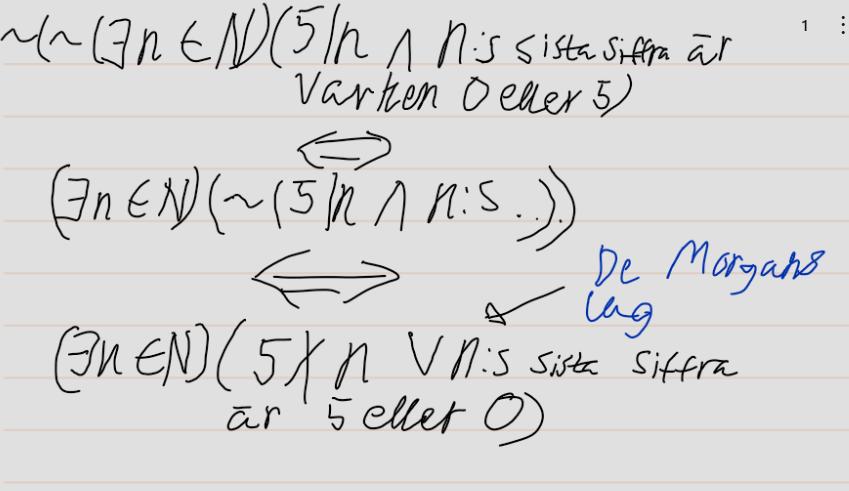 ~(~(∃n∈N)(5|n ∧ n:s sista siffra är
varken 0 eller 5)
⟺
(∃n∈N)(~(5|n ∧ n:s ..))
⟺
De Morgans
lag
(∃n∈N)(5∤n ∨ n:s sista siffra
är 5 eller 0)
1